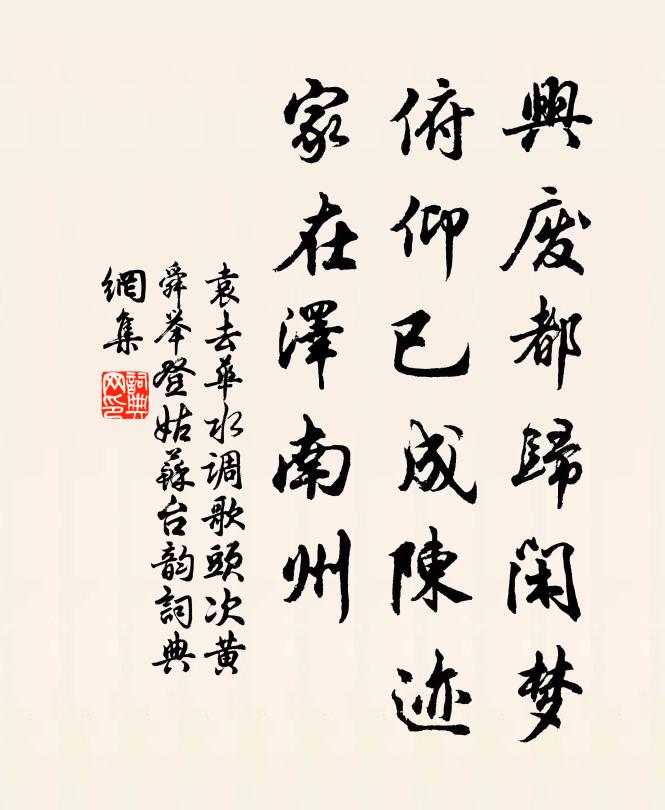 興废都歸闲梦
俯仰已成陳迹
家在澤南州
袁去華水调歌頭次黄
舜举登姑蘇台韵詞典
網集
詞典
网印